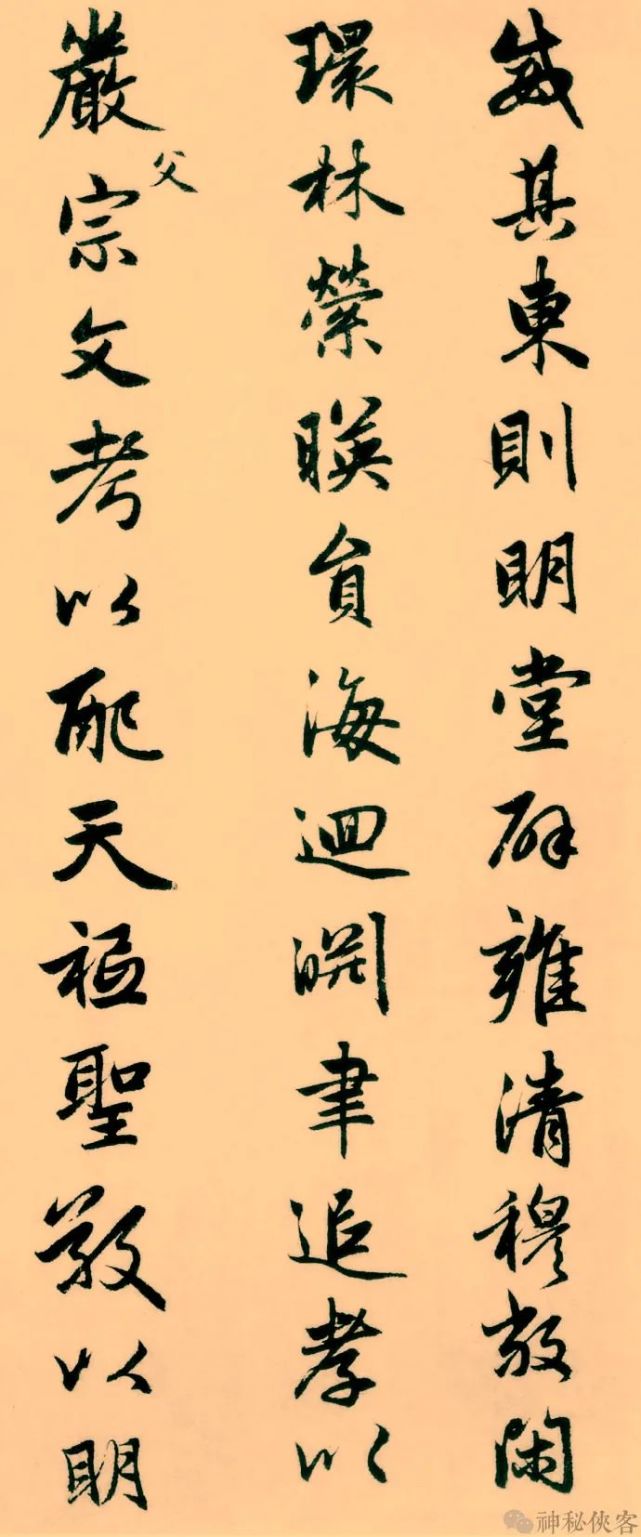 威其東則明堂辟雍清穆敞閑
環林縈暎員海迴淵聿追孝以
嚴父宗文考以配天祗聖敬以明
神秘俠客